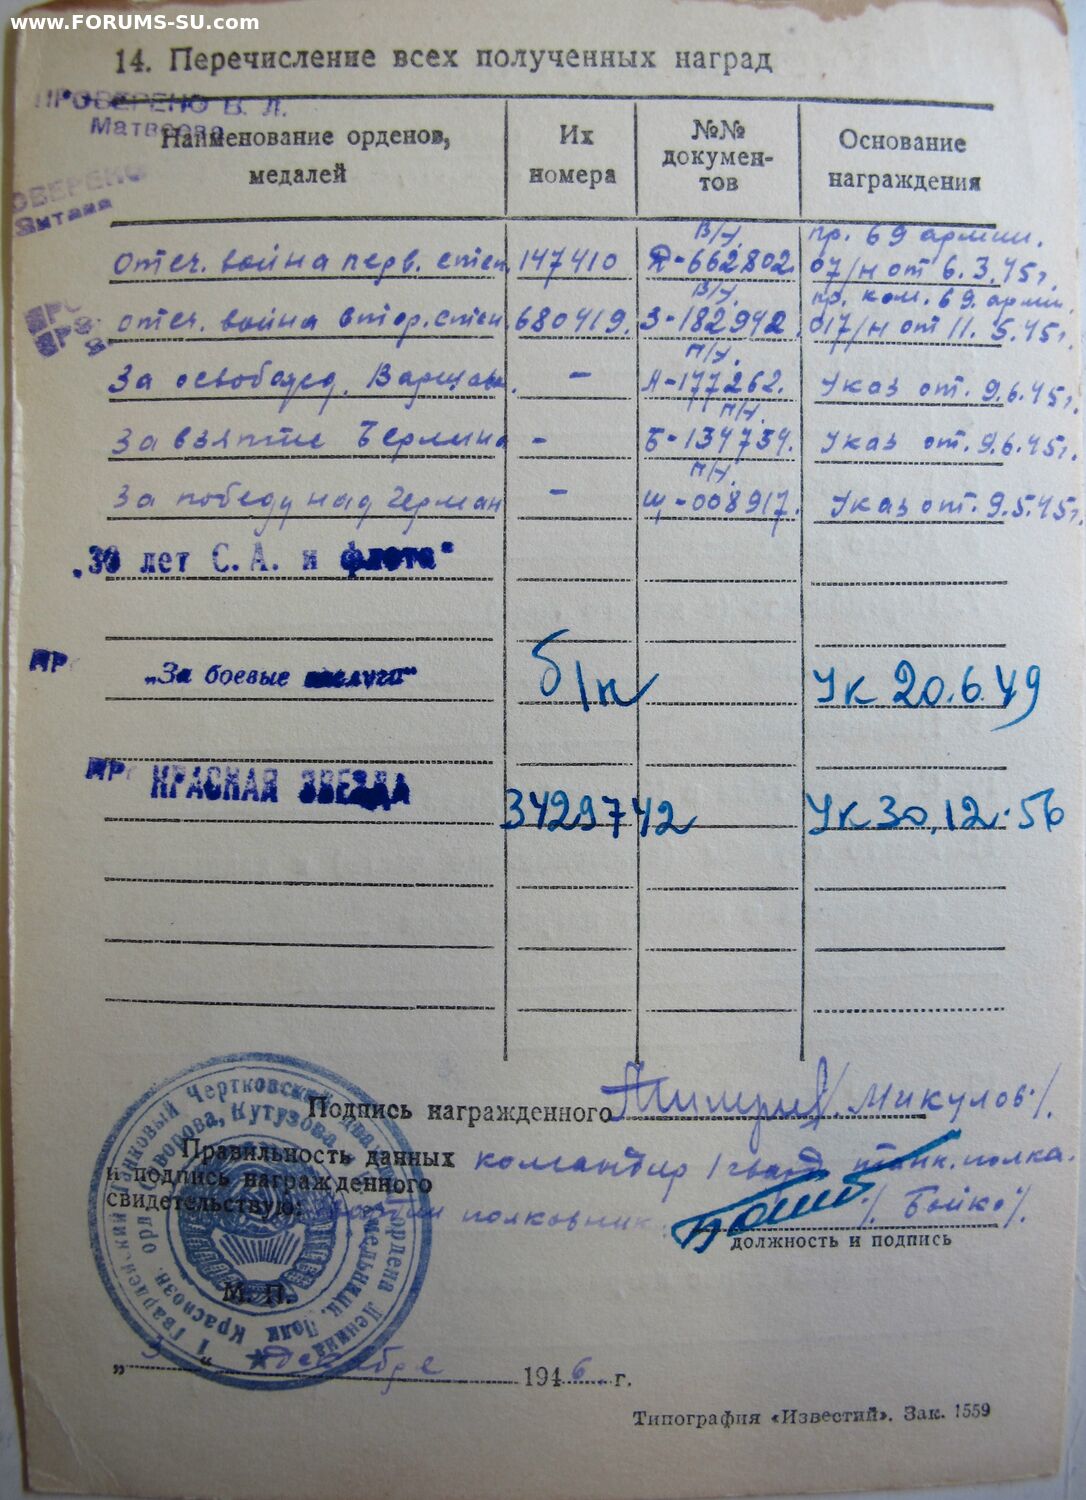 www.FORUMS-SU.com
14. Перечисление всех полученных наград
ПРОВЕРЕНО В. Л.
Матвеева
Наименование орденов, медалей
Их номера
№№ документов
Основание награждения
ОВЕРЕНО
отеч. война перв. степ. 147410 В/У. Д-662802. пр. 69 армии. 07/н от 6.3.45г.
отеч. война втор. степ. 680419. В/У. З-182942. пр. ком. 69. арми. 017/н от 11.5.45г.
За освобожд. Варшавы. - П/У. А-177262. Указ от. 9.6.45г.
За взятие Берлина - П/У. Б-134734. Указ от. 9.6.45г.
За победу над Герман - П/У. Щ-008917. Указ от. 9.5.45г.
„30 лет С. А. и флота"
ПР
„За боевые заслуги" б/н Ук 20.6.49
ПР
КРАСНАЯ ЗВЕЗДА 3429742 Ук 30.12.56
Подпись награжденного /Микулов/.
Правильность данных
и подпись награжденного
свидетельствую:
командир 1 гвард. танк. полка.
гвардии полковник. /Бойко/.
должность и подпись
М. П.
„3" декабре 1946. г.
Типография «Известий». Зак. 1559